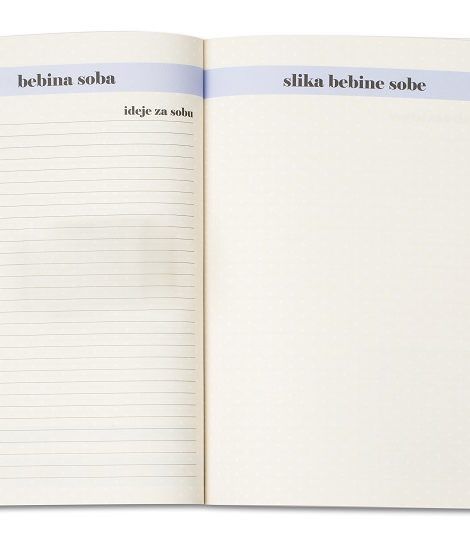 bebina soba
ideje za sobu
slika bebine sobe